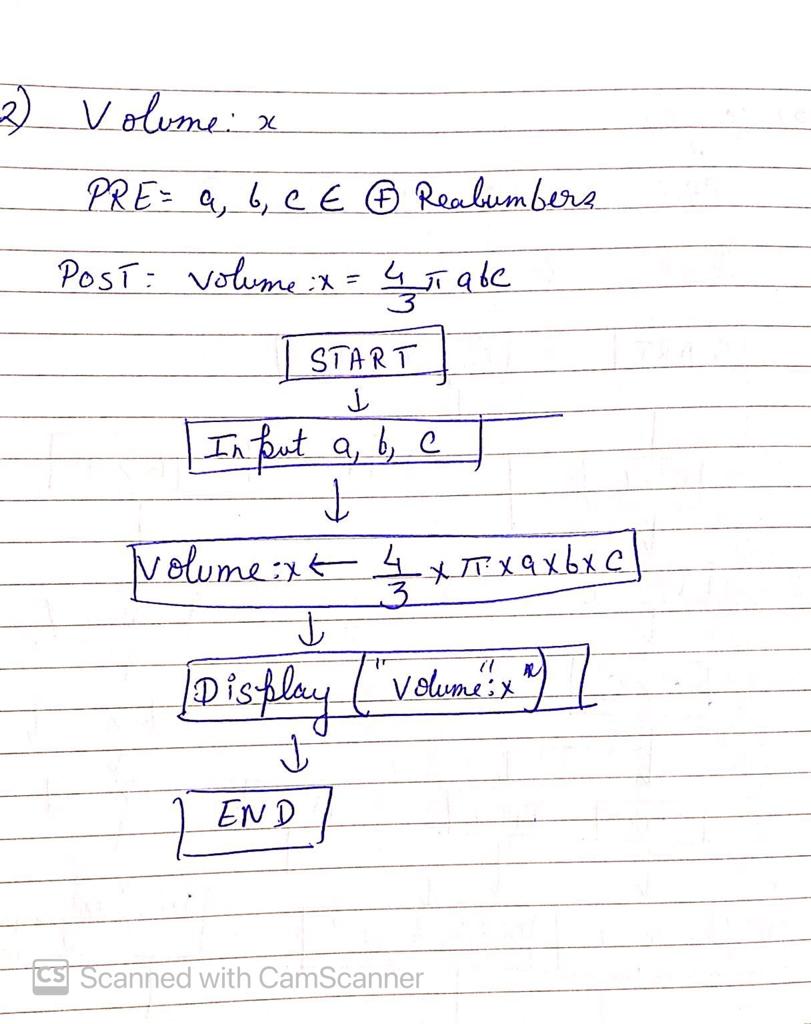 2) Volume: x
PRE= a, b, c ∈ ⊕ Realumbers
POST: Volume:x = 4/3 π abc
START
↓
Input a, b, c
↓
Volume:x ← 4/3 × π × a × b × c
↓
Display ("Volume":x")
↓
END
CS Scanned with CamScanner